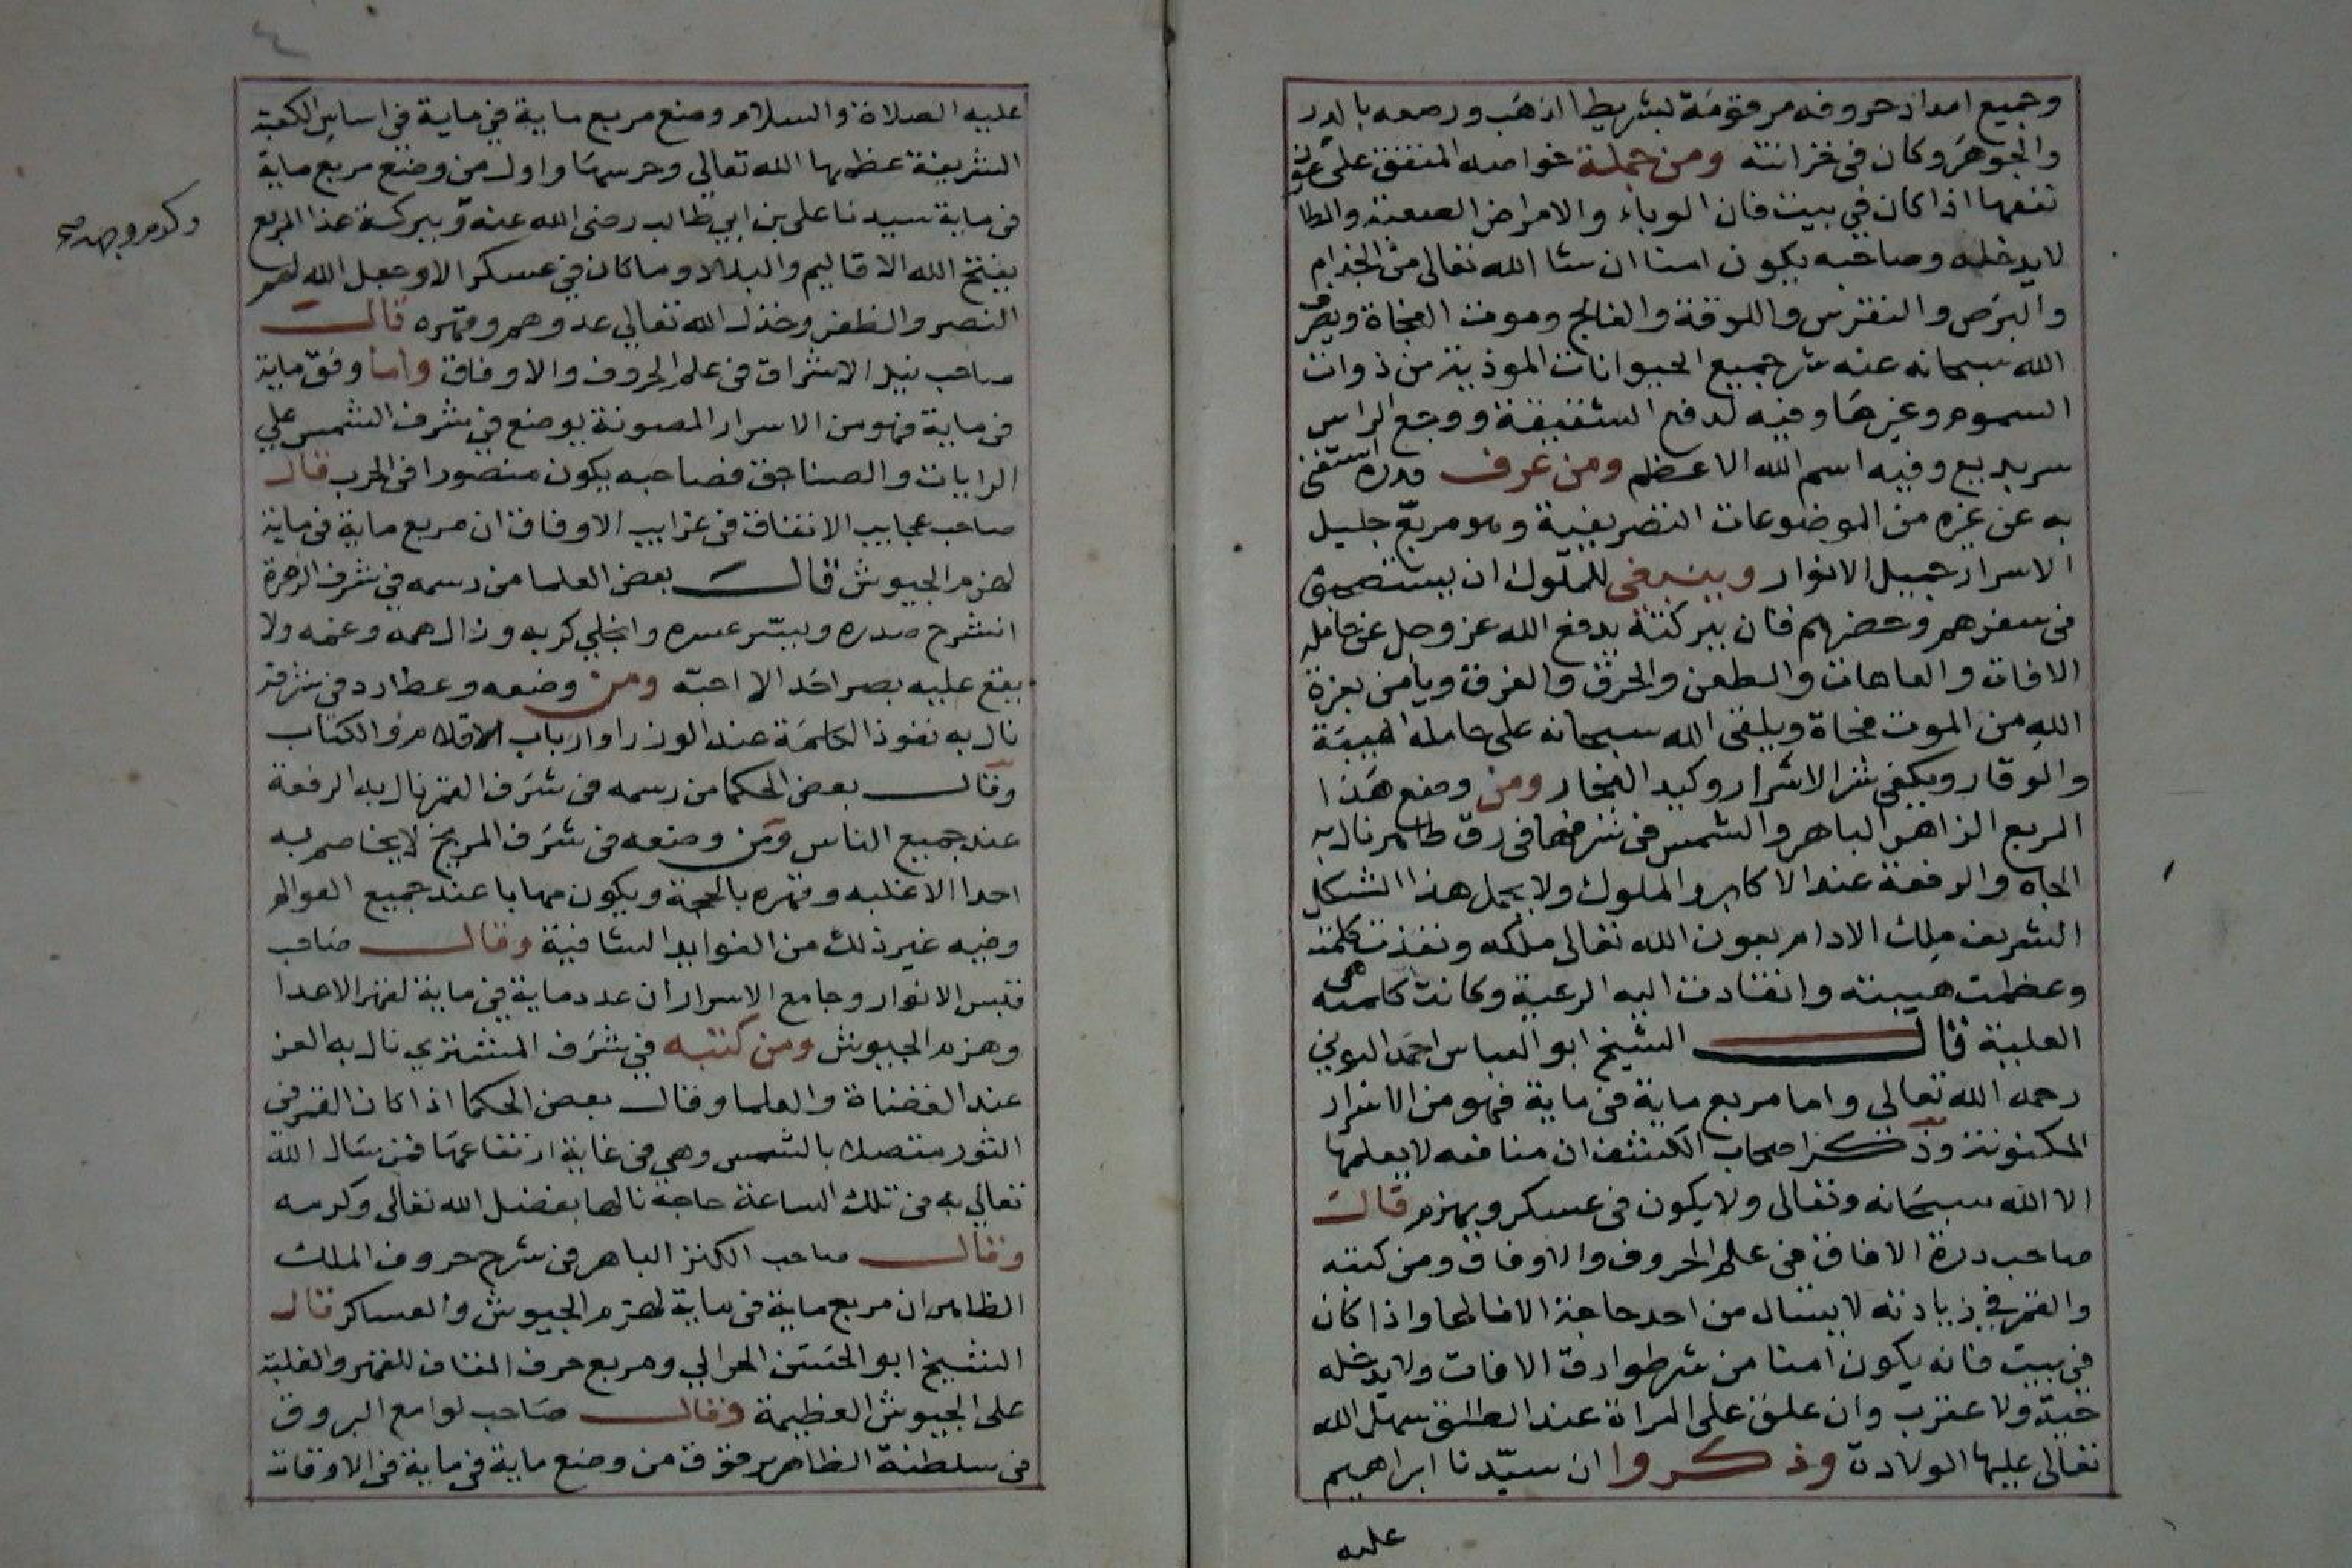 وجميع امداد حروفه مرقومة بشريط الذهب ورصعه بالدرر
والجوهر وكان في خزانته ومن جملة خواصه المتفق على
نفعها اذا كان في بيت فان الوباء والامراض الصعبة والطا
لا يدخله وصاحبه يكون امنا ان شا الله تعالى من الجذام
والبرص والنقرس واللوقة والفالج وموت الفجاة ويصرف
الله سبحانه عنه شر جميع الحيوانات الموذية من ذوات
السموم وغيرها وفيه لدفع الشقيقة ووجع الراس
سر بديع وفيه اسم الله الاعظم ومن عرف قدره استغنى
به عن غيره من الموضوعات التصريفية وهو مربع جليل
الاسرار جميل الانوار وينبغي للملوك ان يستصحبوه
في سفرهم وحضرهم فان ببركته يدفع الله عز وجل عن حامله
الافات والعاهات والطعن والحرق والغرق ويأمن بعزة
الله من الموت فجاة ويلقى الله سبحانه على حامله الهيبة
والوقار ويكفى شر الاشرار وكيد الفجار ومن وضع هذا
المربع الزاهر الباهر والشمس في شرفها في رق طاهر نال به
الجاه والرفعة عند الاكابر والملوك ولا يحمل هذا الشكل
الشريف ملك الا دام بعون الله تعالى ملكه ونفذت كلمته
وعظمت هيبته وانقادت اليه الرعية وكانت كلمته هي
العلية قال الشيخ ابو العباس احمد البوني
رحمه الله تعالى واما مربع ماية في ماية فهو من الاسرار
المكنونة وذكر اصحاب الكشف ان منافعه لا يعلمها
الا الله سبحانه وتعالى ولا يكون في عسكر ويهزم قال
صاحب درة الافاق في علم الحروف والاوفاق ومن كتبه
والقمر في زيادته لا يسال من احد حاجة الا نالها واذا كان
في بيت فانه يكون امنا من شر طوارق الافات ولا يدخله
حية ولا عقرب وان علق على المراة عند الطلق سهل الله
تعالى عليها الولادة وذكروا ان سيدنا ابراهيم
عليه
عليه الصلاة والسلام وضع مربع ماية في ماية في اساس الكعبة
الشريفة عظمها الله تعالى وحرسها واول من وضع مربع ماية
في ماية سيدنا علي بن ابي طالب رضي الله عنه وببركة هذا المربع
يفتح الله الاقاليم والبلاد وما كان في عسكر الا وجعل الله لهم
النصر والظفر وخذل الله تعالى عدوهم وقهره قال
صاحب نيل الاشراق في علم الحروف والاوفاق واما وفق ماية
في ماية فهو من الاسرار المصونة يوضع في شرف الشمس على
الرايات والصناجق فصاحبه يكون منصورا في الحرب قال
صاحب عجايب الاتفاق في غرايب الاوفاق ان مربع ماية في ماية
لهزم الجيوش قال بعض العلما من رسمه في شرف الزهرة
انشرح صدره ويسر عسره وانجلي كربه وزال همه وغمه ولا
يقع عليه بصر احد الا احبه ومن وضعه وعطارد في شرفه
نال به نفوذ الكلمة عند الوزرا وارباب الاقلام والكتاب
وقال بعض الحكما من رسمه في شرف القمر نال به الرفعة
عند جميع الناس ومن وضعه في شرف المريخ لا يخاصم به
احدا الا غلبه وقهره بالحجة ويكون مهابا عند جميع العوالم
وفيه غير ذلك من الفوايد الشافية وقال صاحب
قبس الانوار وجامع الاسرار ان عدد ماية في ماية لقهر الاعدا
وهزم الجيوش ومن كتبه في شرف المشتري نال به العز
عند القضاة والعلما وقال بعض الحكما اذا كان القمر في
الثور متصلا بالشمس وهي في غاية ارتفاعها فمن سال الله
تعالى به في تلك الساعة حاجة نالها بفضل الله تعالى وكرمه
وقال صاحب الكنز الباهر في شرح حروف الملك
الظاهر ان مربع ماية في ماية لهزم الجيوش والعساكر قال
الشيخ ابو الحسن الحرالي ومربع حرف القاف للقهر والغلبة
على الجيوش العظيمة وقال صاحب لوامع البروق
في سلطنة الظاهر برقوق من وضع ماية في ماية في الاوقات
وكرم وجهه